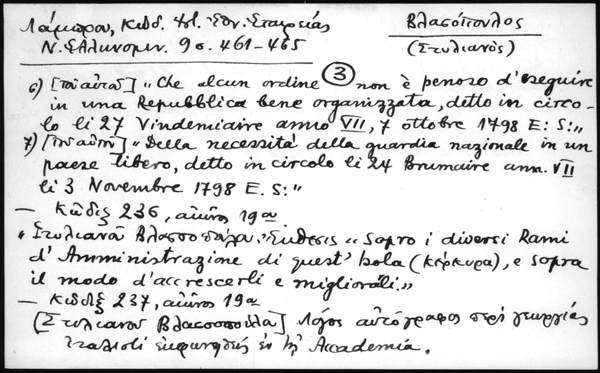 Λάμπρου, Κώδ. Ἱστ. Ἐθν. Ἑταιρείας
Βλασόπουλος
Ν. Ἑλληνομν. 9ος. 461-465
(Στυλιανὸς)
3
6) [τοῦ αὐτοῦ] „Che alcun ordine non è penoso d'eseguire
in una Repubblica bene organizzata, detto in circo-
lo li 27 Vindemiaire anno VII, 7 ottobre 1798 E: S:"
7) [τοῦ αὐτοῦ] „Della necessità della guardia nazionale in un
paese libero, detto in circolo li 24 Brumaire ann. VII
li 3 Novembre 1798 E. S:"
— Κῶδιξ 236, αἰῶνος 19ου
„Στυλιανοῦ Βλασσοπούλου Ἔκθεσις „Sopro i diversi Rami
d'Amministrazione di quest' Isola (Κέρκυρα), e sopra
il modo d'accrescerli e migliorarli."
— Κῶδιξ 237, αἰῶνος 19ου
[Στυλιανοῦ Βλασσοπούλου] Λόγος αὐτόγραφος περὶ γεωργίας
Ἰταλιστὶ ἐκφωνηθεὶς ἐν τῇ Accademia.